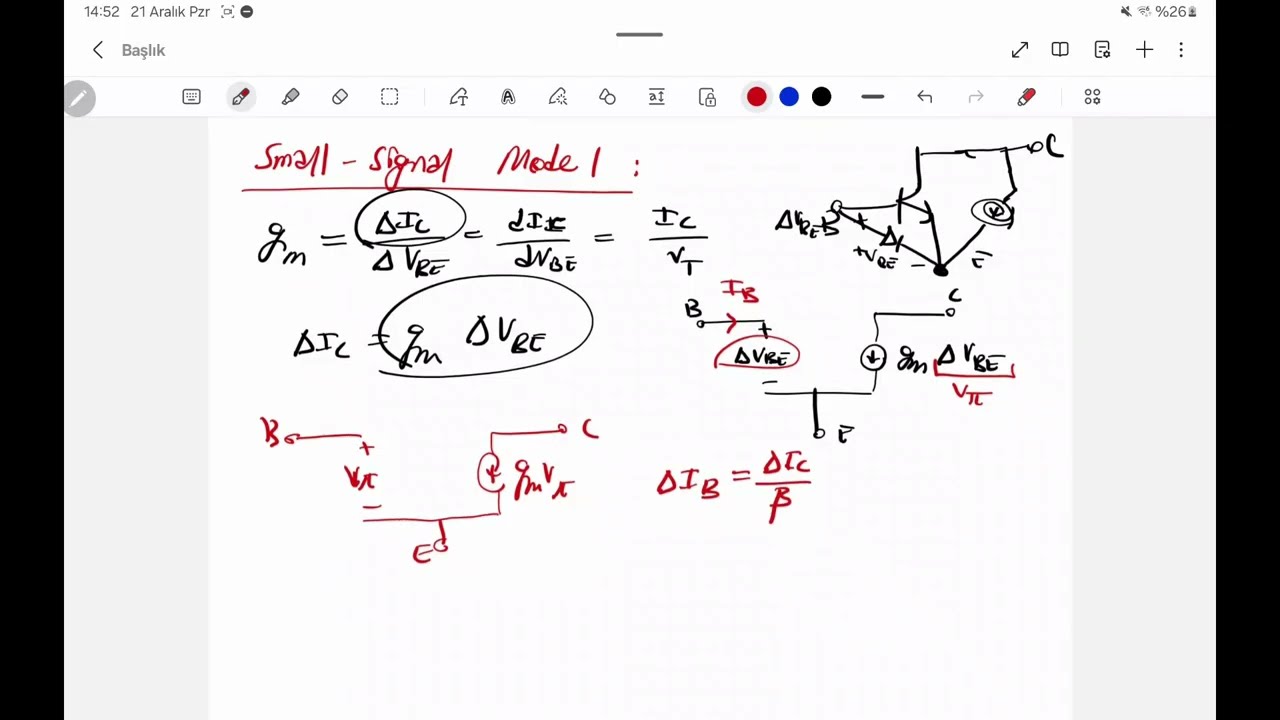 14:52 21 Aralık Pzr %26
Başlık
Small-Signal Model :
gm = ΔIC / ΔVBE = dIC / dVBE = IC / VT
ΔIC = gm ΔVBE
C
ΔVBE B + Δ
+VBE - E
IB
B + C
ΔVBE gm ΔVBE
Vπ
-
E
B + C
Vπ gmVπ
-
E
ΔIB = ΔIC / β